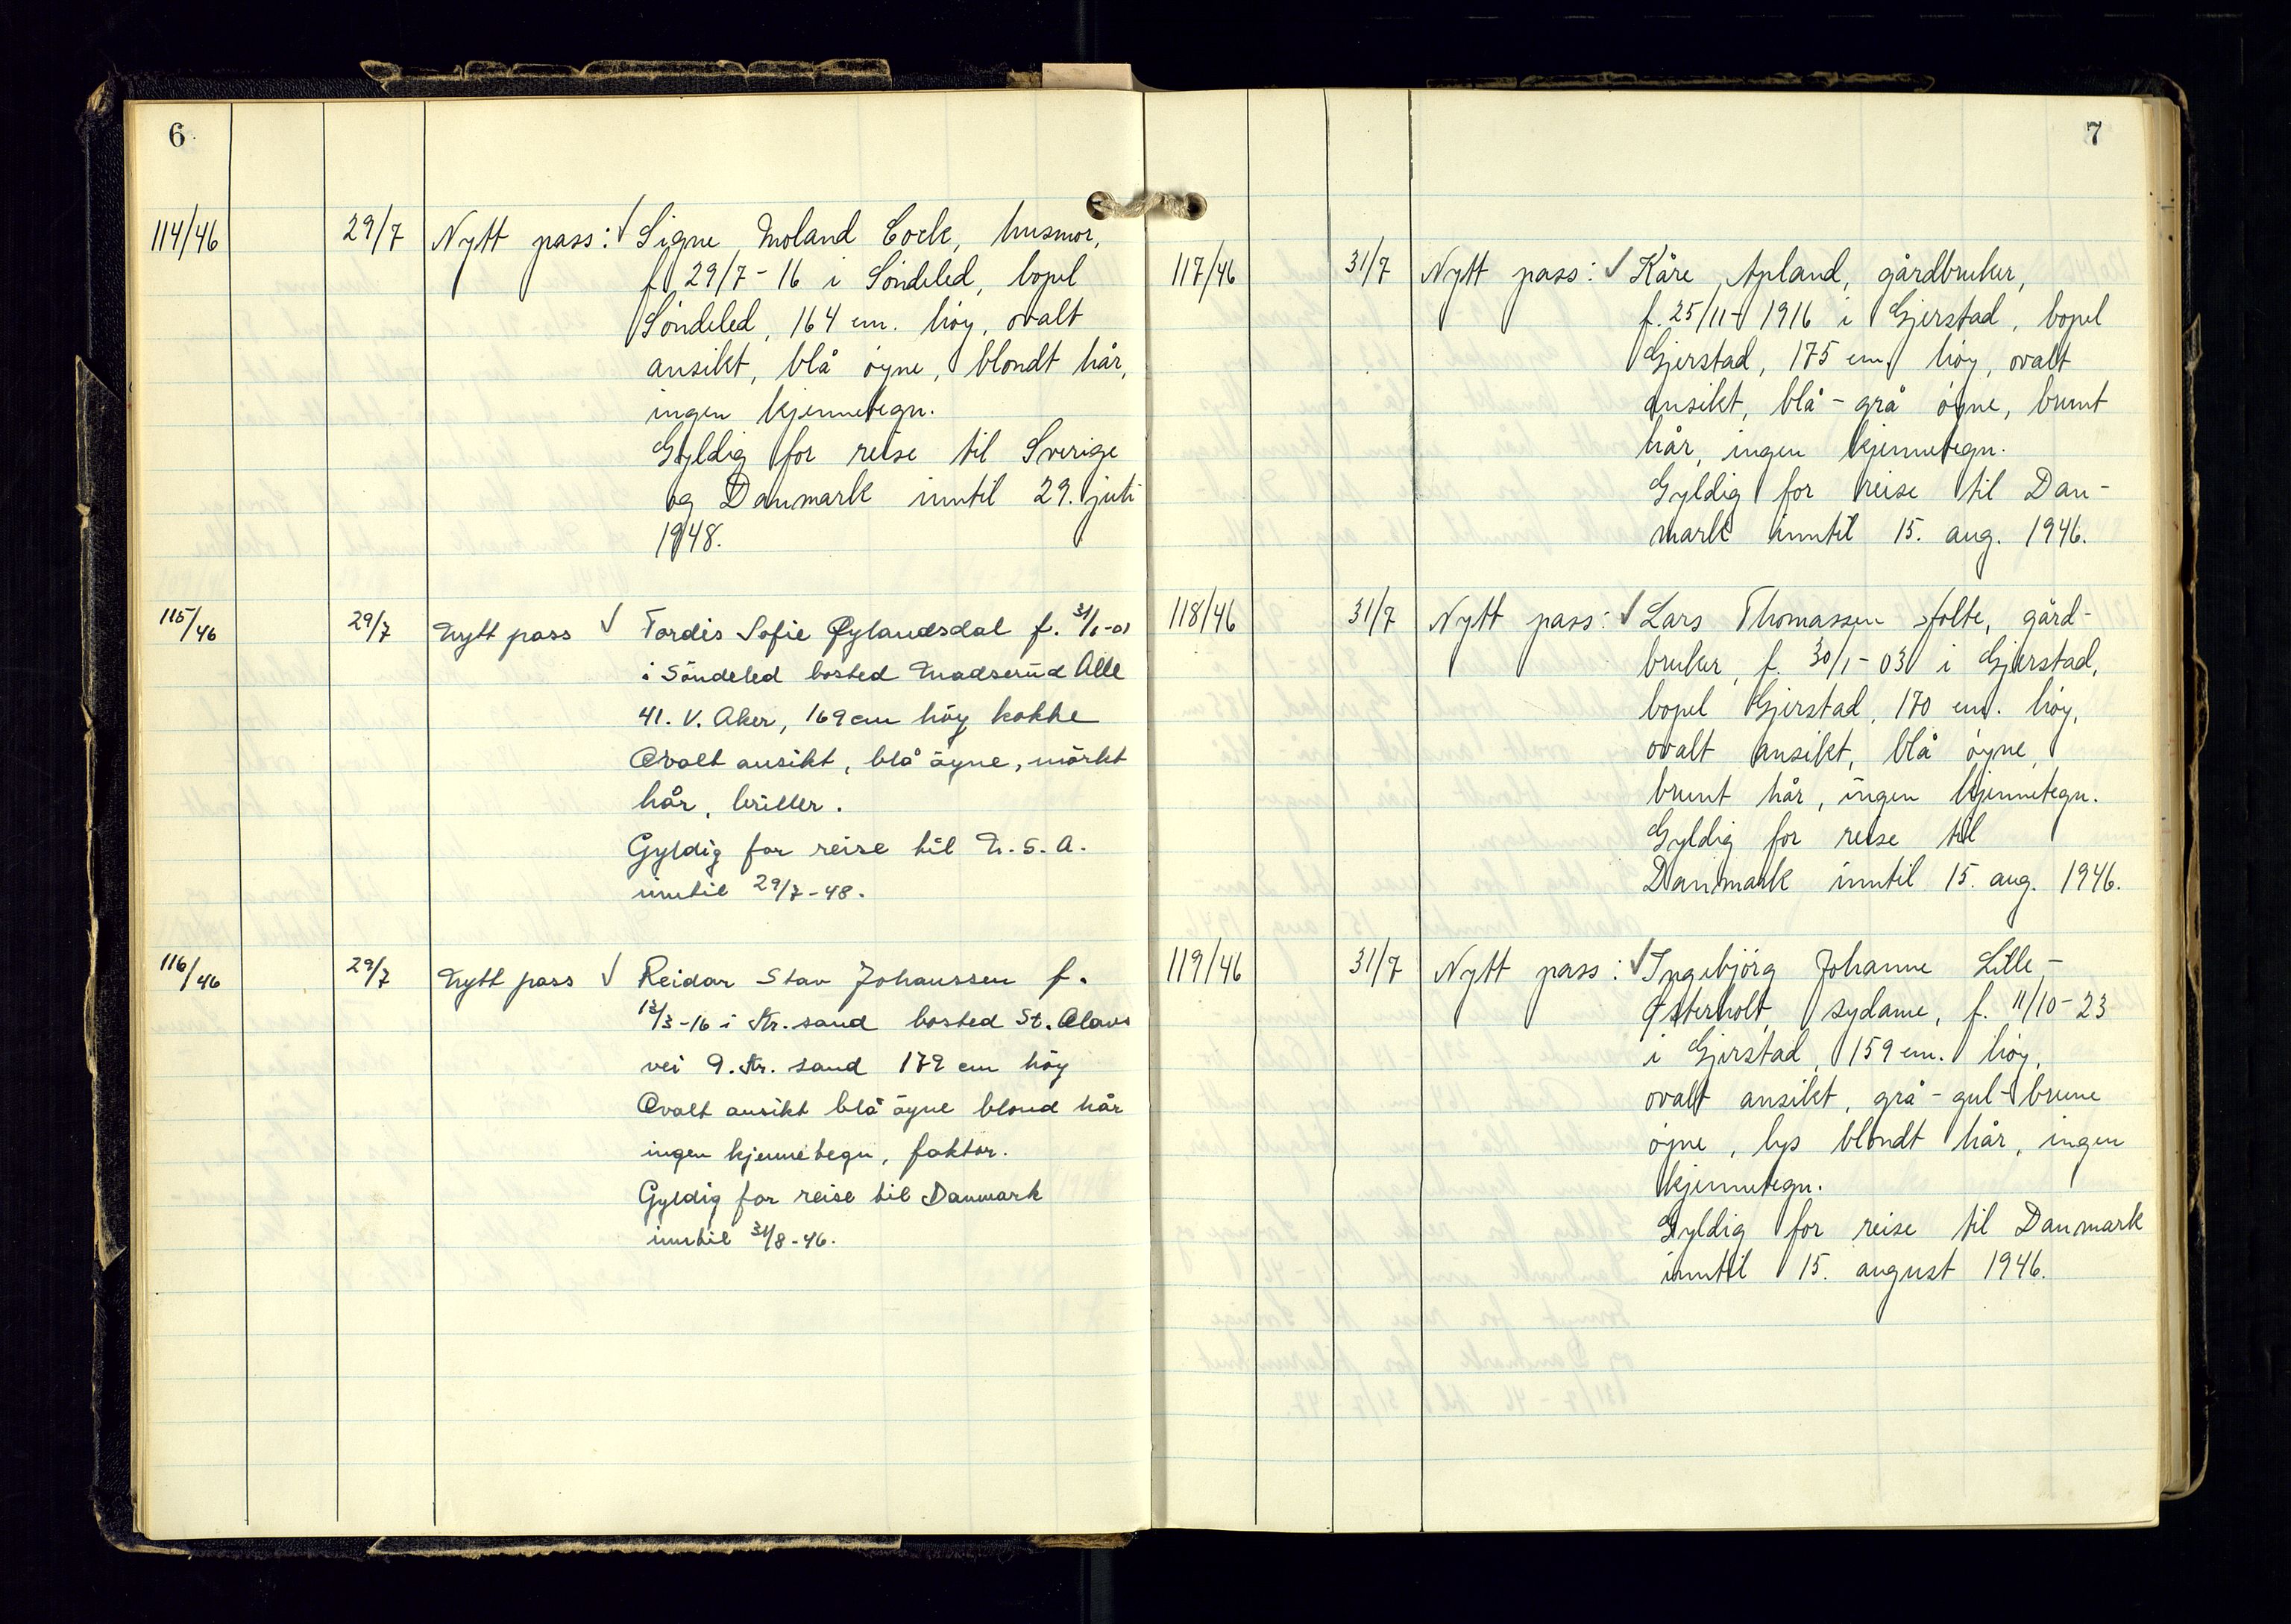 6
114/46 29/7 Nytt pass: √ Signe Moland Cock, husmor,
f. 29/7-16 i Söndeled, bopel
Söndeled, 164 cm. høy, ovalt
ansikt, blå øyne, blondt hår,
ingen kjennetegn.
Gyldig for reise til Sverige
og Danmark inntil 29. juli
1948.
115/46 29/7 Nytt pass √ Tordis Sofie Øylandsdal f.
i Söndeled bosted Madserud Alle
41. V. Aker, 169 cm höy kokke
Ovalt ansikt, blå öyne, mörkt
hår, briller.
Gyldig for reise til U.S.A.
inntil 29/7-48.
116/46 29/7 Nytt pass √ Reidar Stav Johanssen f.
13/3-16 i Kr.sand bosted St. Olavs
vei 9. Kr. sand 179 cm höy
Ovalt ansikt blå öyne blond hår
ingen kjennetegn, faktor.
Gyldig for reise til Danmark
inntil 31/8-46.
7
117/46 31/7 Nytt pass: √ Kåre Apland, gårdbruker,
f. 25/11-1916 i Gjerstad, bopel
Gjerstad, 175 cm. høy, ovalt
ansikt, blå-grå øyne, brunt
hår, ingen kjennetegn.
Gyldig for reise til Dan-
mark inntil 15. aug. 1946.
118/46 31/7 Nytt pass: √ Lars Thomassen Holte, gård-
bruker, f. 30/1-03 i Gjerstad,
bopel Gjerstad, 170 cm. høy,
ovalt ansikt, blå øyne,
brunt hår, ingen kjennetegn.
Gyldig for reise til
Danmark inntil 15. aug. 1946.
119/46 31/7 Nytt pass: √ Ingebjörg Johanne Lille-
Østerholt, sydame, f. 11/10-23
i Gjerstad, 159 cm. høy,
ovalt ansikt, grå-gul-brune
øyne, lys blondt hår, ingen
kjennetegn.
Gyldig for reise til Danmark
inntil 15. august 1946.